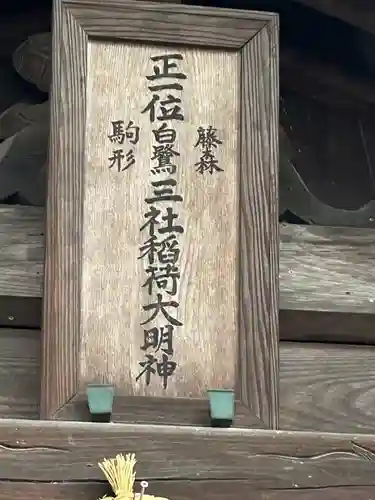 藤森
正一位白鷺三社稲荷大明神
駒形